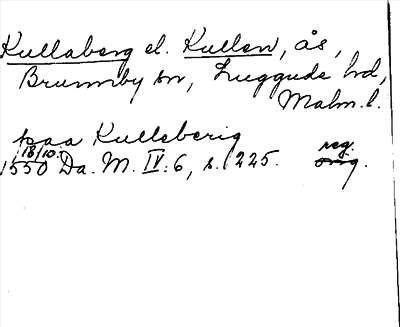 Kullaberg el. Kullen, ås,
Brunnby sn, Luggude hd,
Malm. l.
paa Kullsberig
18/10.
1550 Da. M. IV: 6, s. 225. reg.
orig.